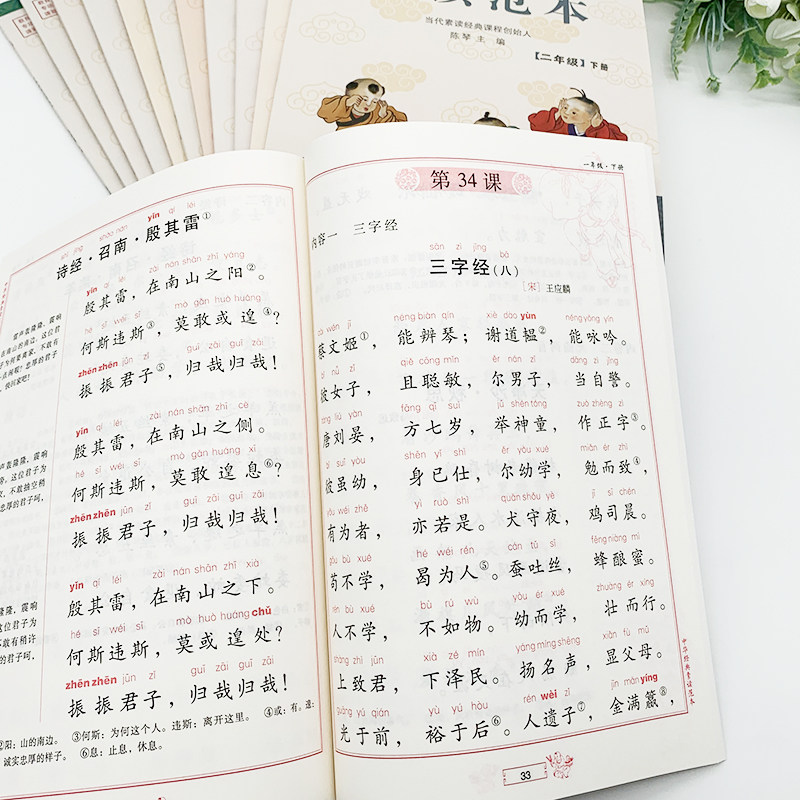 范本
当代素读经典课程创始人
陈琴 主 编
【二年级】下册
yīn qí léi
诗经·召南·殷其雷①
yīn qí léi zài nán shān zhī yáng
殷其雷，在南山之阳②。
hé sī wéi sī mò gǎn huò huáng
何斯违斯③，莫敢或遑④？
zhēn zhēn jūn zǐ guī zāi guī zāi
振振君子⑤，归哉归哉！
yīn qí léi zài nán shān zhī cè
殷其雷，在南山之侧。
hé sī wéi sī mò gǎn huáng xī
何斯违斯，莫敢遑息⑥？
zhēn zhēn jūn zǐ guī zāi guī zāi
振振君子，归哉归哉！
yīn qí léi zài nán shān zhī xià
殷其雷，在南山之下。
hé sī wéi sī mò huò huáng chǔ
何斯违斯，莫或遑处？
zhēn zhēn jūn zǐ guī zāi guī zāi
振振君子，归哉归哉！
②阳：山的南边。 ③何斯：为何这个人。违斯：离开这里。 ④或：有。遑：
诚实忠厚的样子。 ⑥息：止息，休息。
一年级·下册
第 34 课
内容一 三字经
sān zì jīng bā
三字经（八）
［宋］王应麟
néng biàn qín xiè dào yùn néng yǒng yín
蔡文姬①，能辨琴；谢道韫②，能咏吟。
qiě cōng mǐn ěr nán zǐ dāng zì jǐng
彼女子，且聪敏，尔男子，当自警。
fāng qī suì jǔ shén tóng zuò zhèng zì
唐刘晏，方七岁，举神童，作正字③。
shēn yǐ shì ěr yòu xué miǎn ér zhì
彼虽幼，身已仕，尔幼学，勉而致④，
yì ruò shì quǎn shǒu yè jī sī chén
有为者，亦若是。犬守夜，鸡司晨。
hé wéi rén cán tǔ sī fēng niàng mì
苟不学，曷为人⑤。蚕吐丝，蜂酿蜜。
bù rú wù yòu ér xué zhuàng ér xíng
人不学，不如物。幼而学，壮而行。
xià zé mín yáng míng shēng xiǎn fù mǔ
上致君，下泽民。扬名声，显父母。
yù yú hòu rén wèi zǐ jīn mǎn yíng
光于前，裕于后⑥。人遗子⑦，金满籯⑧，
中华经典素读范本
33